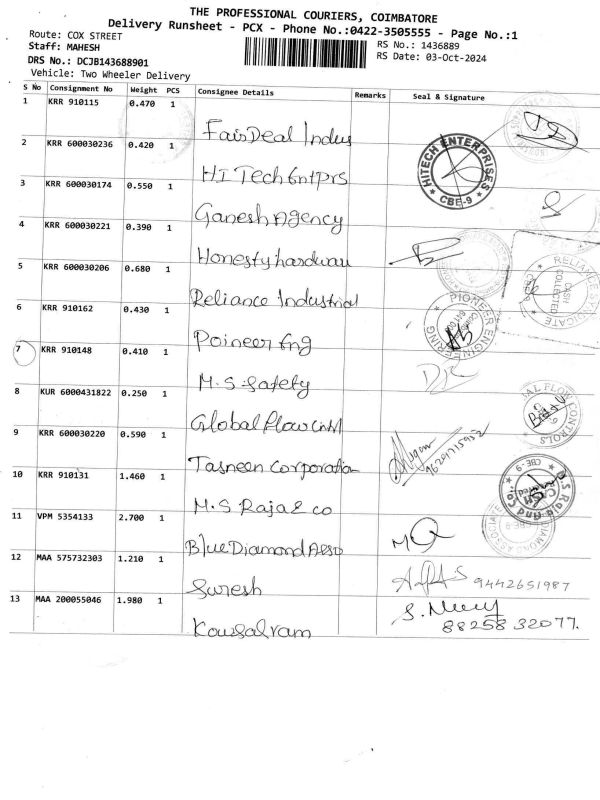 THE PROFESSIONAL COURIERS, COIMBATORE
Delivery Runsheet - PCX - Phone No.:0422-3505555 - Page No.:1
Route: COX STREET
Staff: MAHESH
DRS No.: DCJB143688901
Vehicle: Two Wheeler Delivery
RS No.: 1436889
RS Date: 03-Oct-2024
S No Consignment No Weight PCS Consignee Details Remarks Seal & Signature
1 KRR 910115 0.470 1 FairDeal Indus
2 KRR 600030236 0.420 1 HI Tech Entprs HITECH ENTERPRISES CBE-9
3 KRR 600030174 0.550 1 Ganesh Agency
4 KRR 600030221 0.390 1 Honesty hardwau
5 KRR 600030206 0.680 1 Reliance Industrial CASH COLLECTED
6 KRR 910162 0.430 1 Poineer Eng PIONEER ENGINEERING
7 KRR 910148 0.410 1 M.S. Safety
8 KUR 6000431822 0.250 1 Global Flow Cntrl
9 KRR 600030220 0.590 1 Tasneen Corporation
10 KRR 910131 1.460 1 M.S Raja & co CBE-9
11 VPM 5354133 2.700 1 Blue Diamond Asso
12 MAA 575732303 1.210 1 Suresh 9442651987
13 MAA 200055046 1.980 1 Kowsalram 88258 32077.